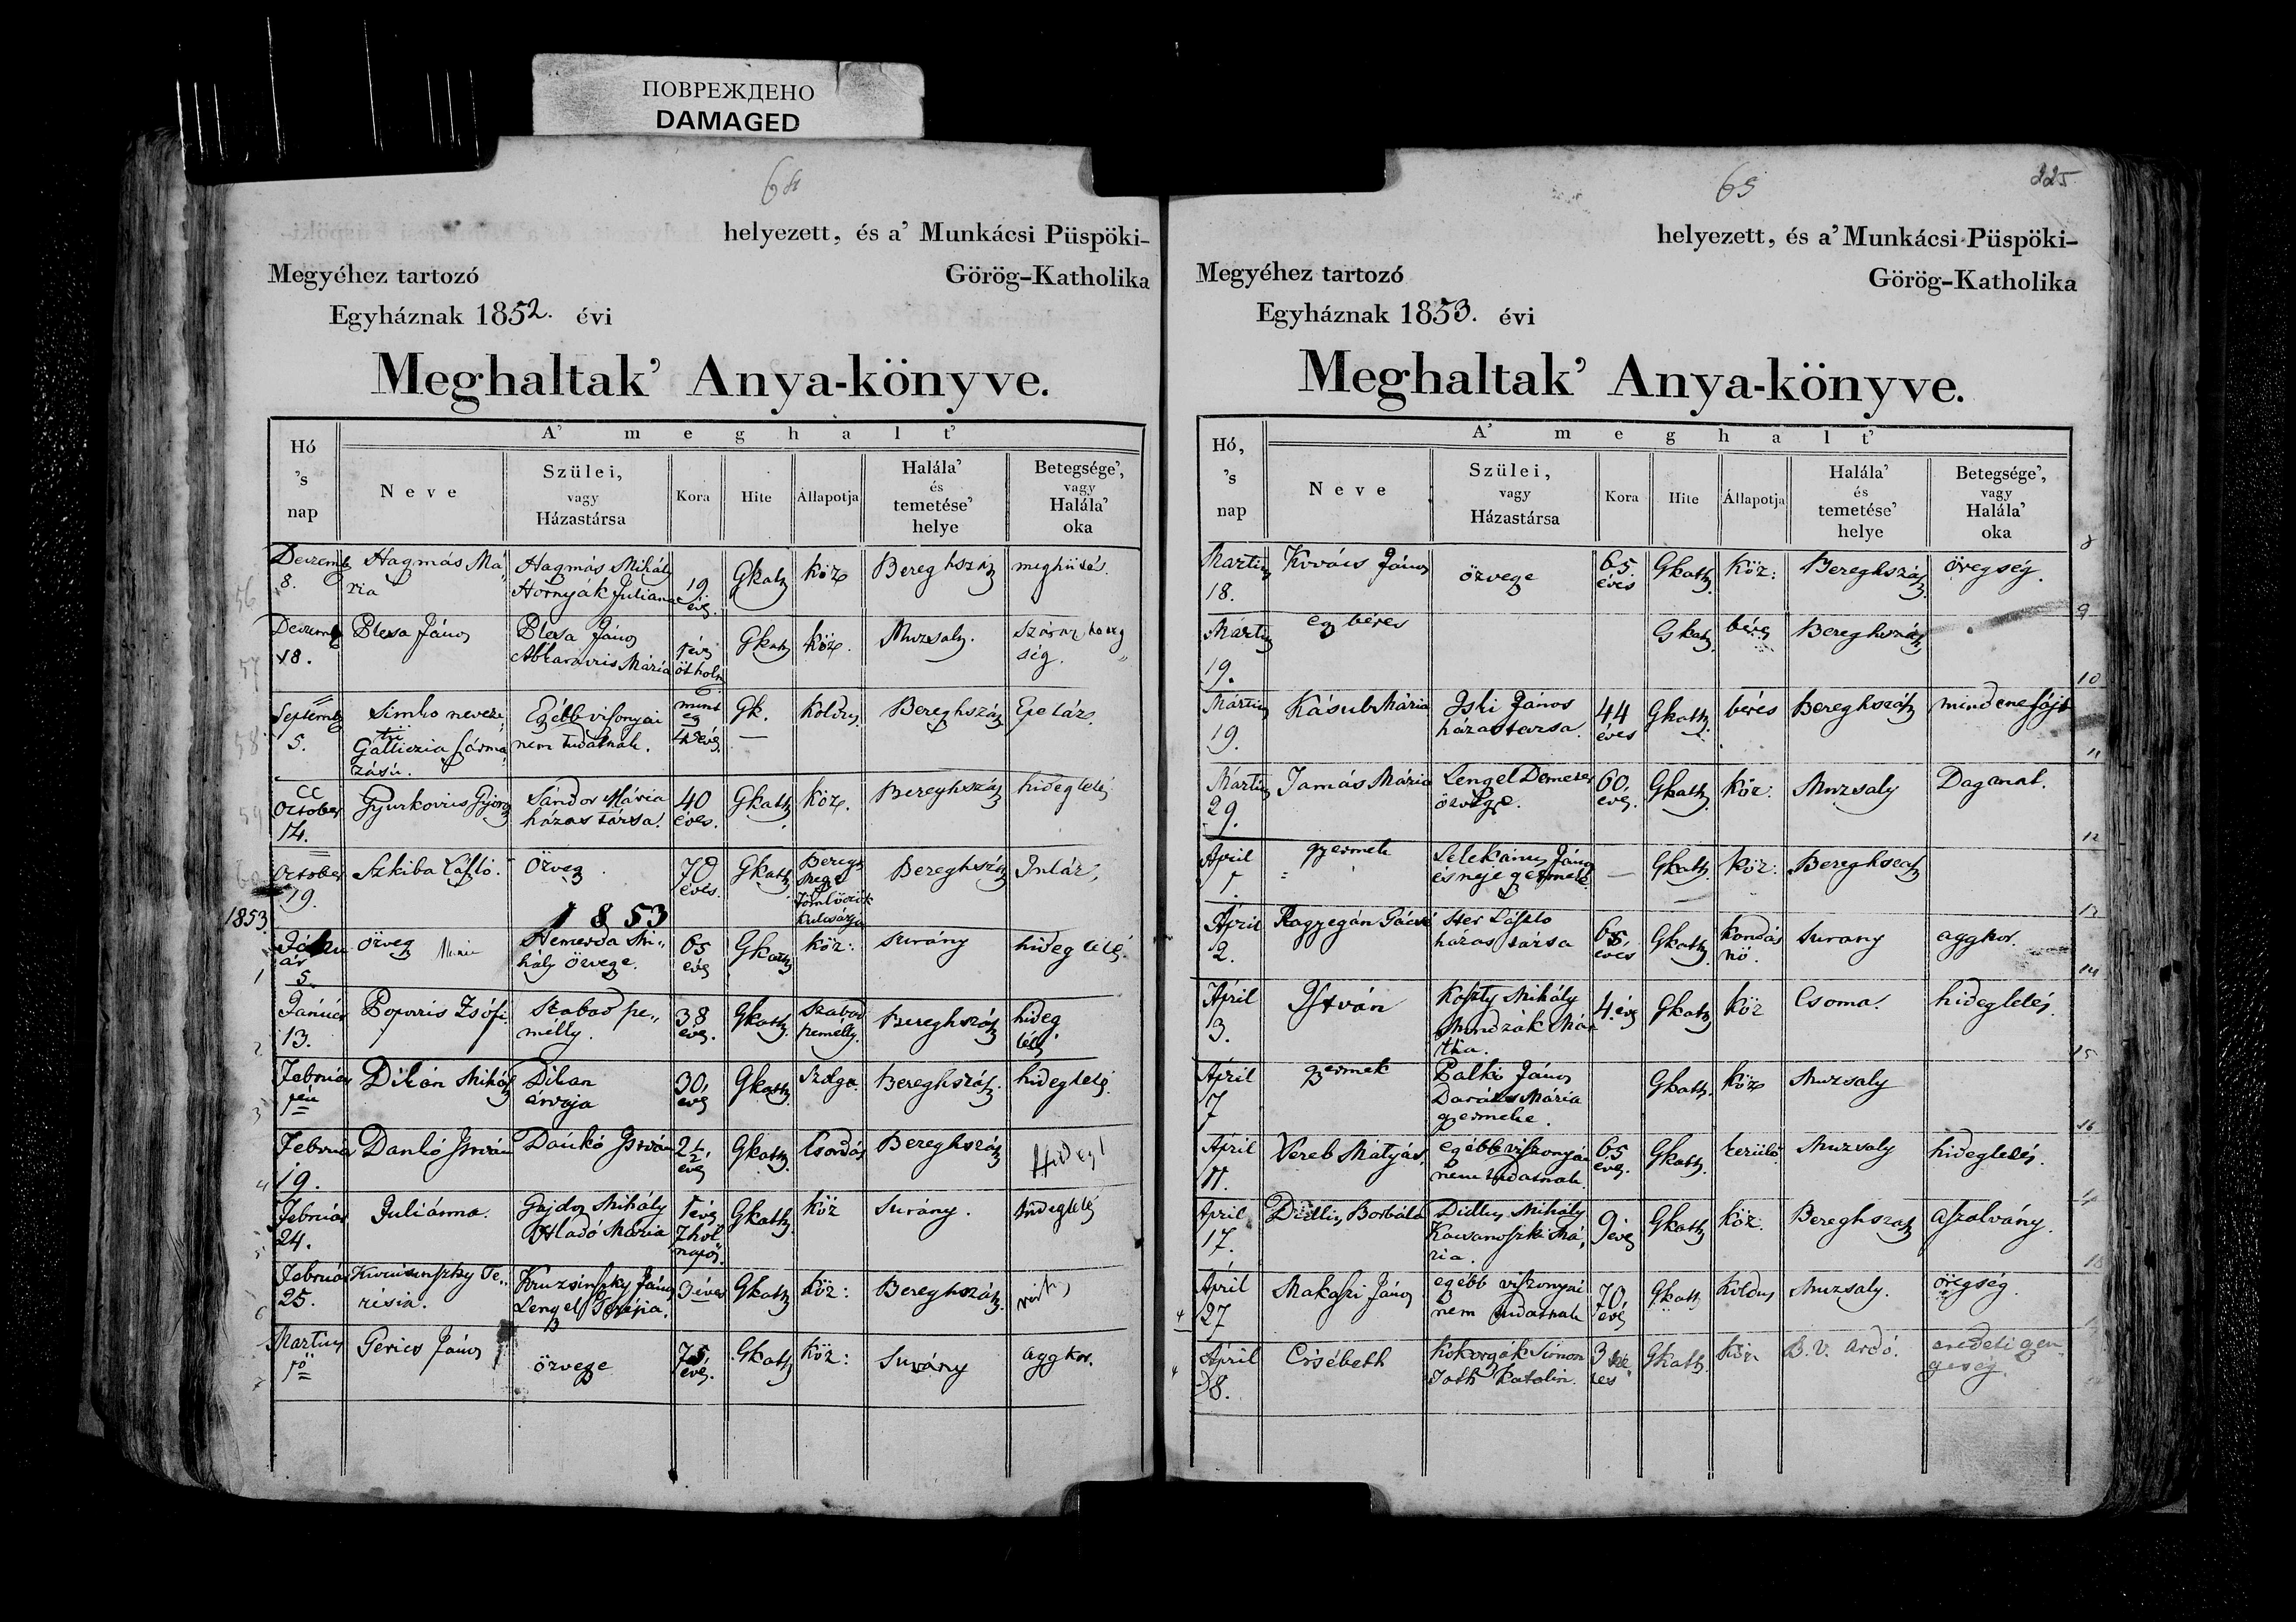 ПОВРЕЖДЕНО
DAMAGED
64
helyezett, és a' Munkácsi Püspöki-
Megyéhez tartozó Görög-Katholika
Egyháznak 1852. évi
Meghaltak' Anya-könyve.
A' meghalt'
Hó 's nap
Neve
Szülei, vagy Házastársa
Kora
Hite
Állapotja
Halála' és temetése' helye
Betegsége', vagy Halála' oka
56 Decemb 8. Hagmás Mária Hagmás Mihály Hornyák Juliana 19 év Gkath köz Bereghszász meghülés.
57 Decemb 18. Plesa János Plesa János Mária 1 év öt holn Gkath köz. Muzsaly. Száraz ség.
58 Septemb 5. Simko nevezetű Galliczia származású. Egyébb visonyai nem tudatnak. mint eg év Gk. Koldus Bereghszász
59 October 14. Gyurkovics György Sándor Mária házas társa. 40 éves. Gkath köz. Bereghszász hideglelés
60 October 19. Szkiba László. Özveg. 70 éves. Gkath Beregh Bereghszász
1853. 1853
1 Január 5. özveg Mihály özvege. 65 év Gkath köz: Surány hideglelés.
2 Január 13. Popovics Zsófi. Szabad személly. 38 év. Gkath Szabad személly. Bereghszász hideg lelés
3 Február Dikán Mihály Dikan árvája 30 év Gkath Szolga. Bereghszász. hideglelés
4 Február 19. Dankó István Dankó István 2½ év Gkath Csordás Bereghszász Hidegl
5 Február 24. Juliánna. Gajdos Mihály Mária 1 év 7 hol napos. Gkath köz Surány. hideglelés
6 Február 25. Terésia. Kruzsinszky János Lengel Terésia. 3 éves Gkath köz: Bereghszász.
7 Martius 1ső Gerics János özvege 75 év. Gkath köz: Surány aggkor.
65 225
helyezett, és a' Munkácsi Püspöki-
Megyéhez tartozó Görög-Katholika
Egyháznak 1853. évi
Meghaltak' Anya-könyve.
A' meghalt'
Hó, 's nap
Neve
Szülei, vagy Házastársa
Kora
Hite
Állapotja
Halála' és temetése' helye
Betegsége', vagy Halála' oka
Martius 18. Kovács János özvege 65 éves Gkath. Köz: Bereghszász öregség. 8
Mártius 19. eg béres Gkath béres Bereghszász 9
Mártius 19. Kásub Mária Iski János házastarsa. 44 éves Gkath. béres Bereghszász mindene fájt 10
Mártius 29. Tamás Mária Lengel Demeter özvege. 60 éves. Gkath. köz. Muzsaly Daganat. 11
April 1. gyermek János és neje gyermek. — Gkath. köz: Bereghszász 12
April 2. László házas társa 65 éves Gkath. kondás nő. Surany aggkor. 13
April 3. István Koszty Mihály Mária. 4 év Gkath köz Csoma. hideglelés. 14
April 7 gyermek Palkó János Mária gyermeke. Gkath. köz Muzsaly 15
April 11. Vereb Mátyás. egébb viszonyai nem tudatnak. 65 év. Gkath. kerülő Muzsaly hideglelés. 16
April 17. Didlis Borbála Didlis Mihály Mária. 9 év Gkath köz. Bereghszász aszalvány.
April 27 Makassi János egébb viszonyai nem tudatnak 70 év Gkath Koldus Muzsaly. öregség. 18
April 28. Ersébeth Simon Toth Katalin. 3 Gkath. köz B. V. Ardó. eredeti gyengeség.